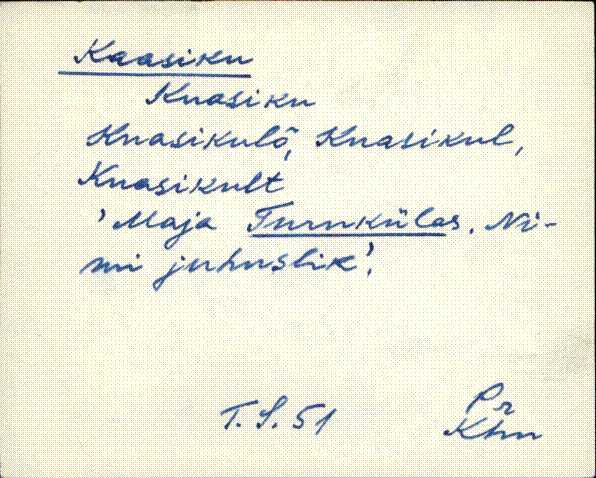 Kaasiku
Kuasiku
Kuasikulõ, Kuasikul,
Kuasikult
'Maja Turukülas. Ni-
mi juhuslik'.
T. S. 51
Pr
Khn